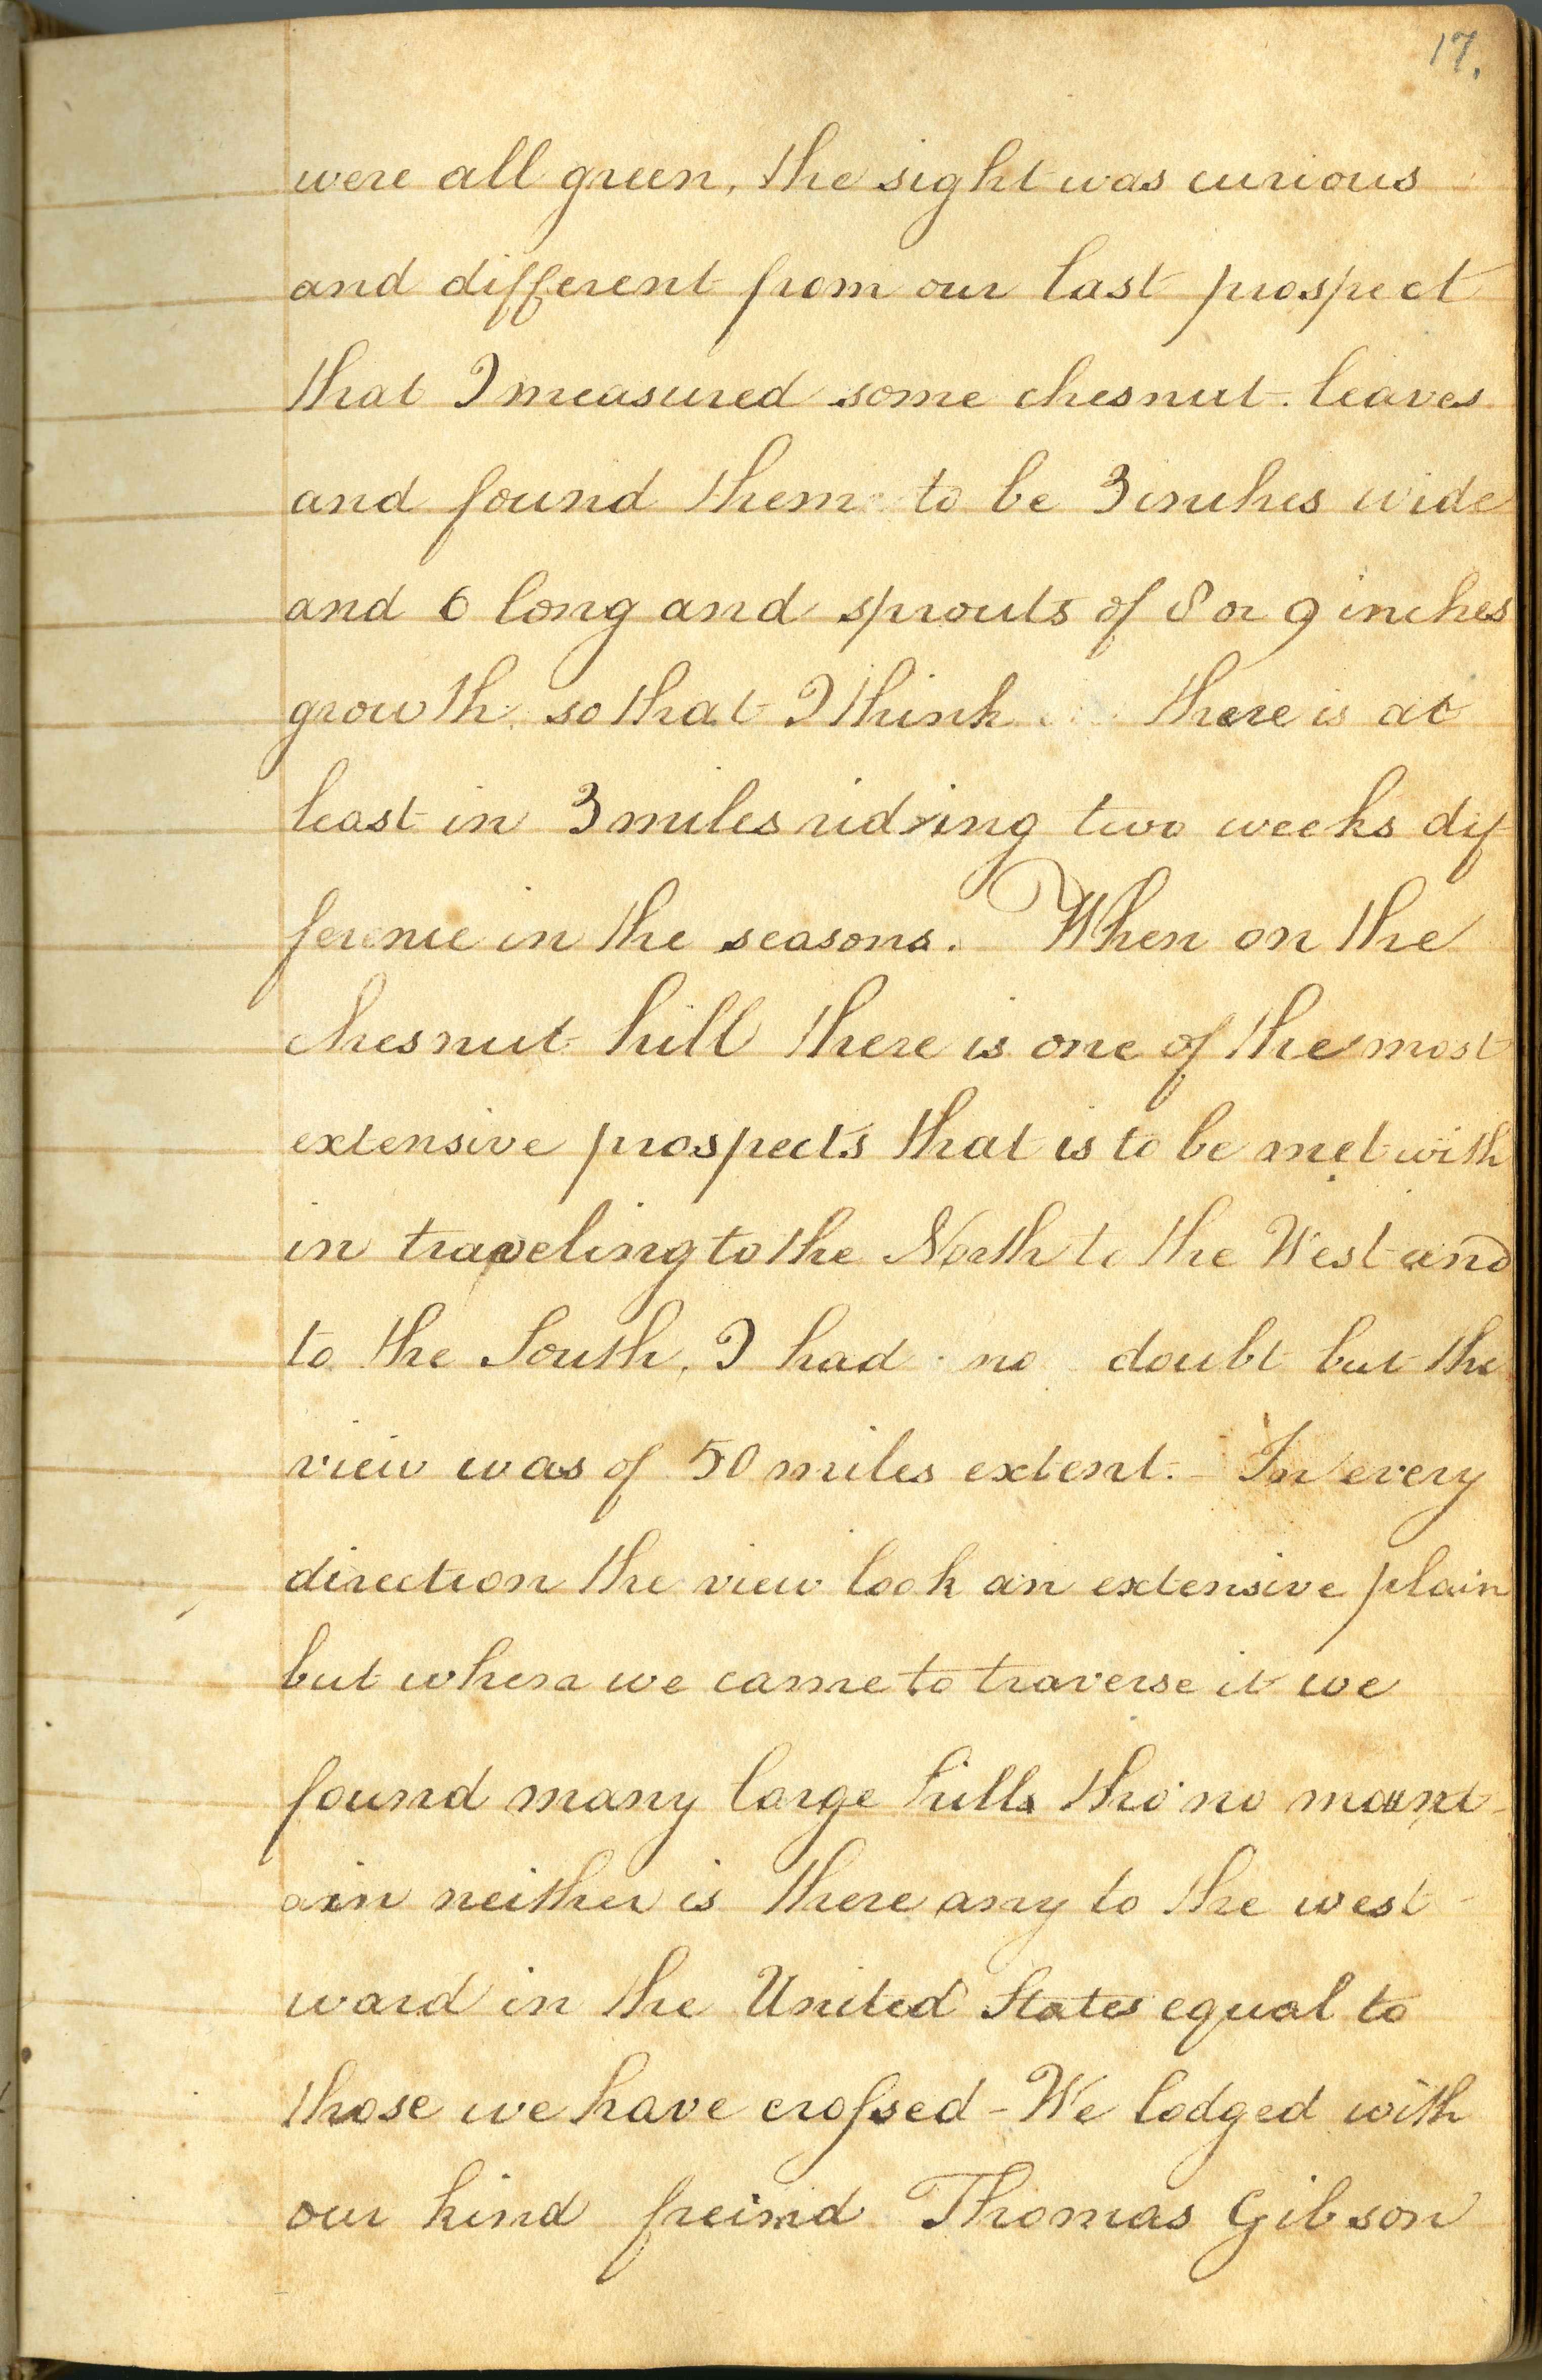 17.
were all green, the sight was curious
and different from our last prospect
that I measured some chesnut leaves
and found them to be 3 inches wide
and 6 long and sprouts of 8 or 9 inches
growth so that I think there is at
least in 3 miles riding two weeks dif-
ference in the seasons. When on the
chesnut hill there is one of the most
extensive prospects that is to be met with
in traveling to the North to the West and
to the South, I had no doubt but the
view was of 50 miles extent. In every
direction the view look an extensive plain
but when we came to traverse it we
found many large hills tho' no mount-
ain neither is there any to the west-
ward in the United States equal to
those we have crossed - We lodged with
our kind freind Thomas Gibson